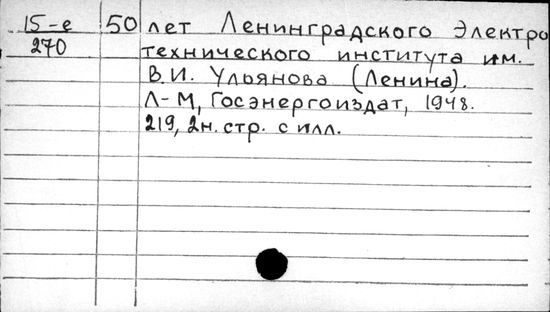 15-е 50 лет Ленинградского Электро
270 технического института им.
В.И. Ульянова (Ленина).
Л-М, Госэнергоиздат, 1948.
219, 2н. стр. с илл.